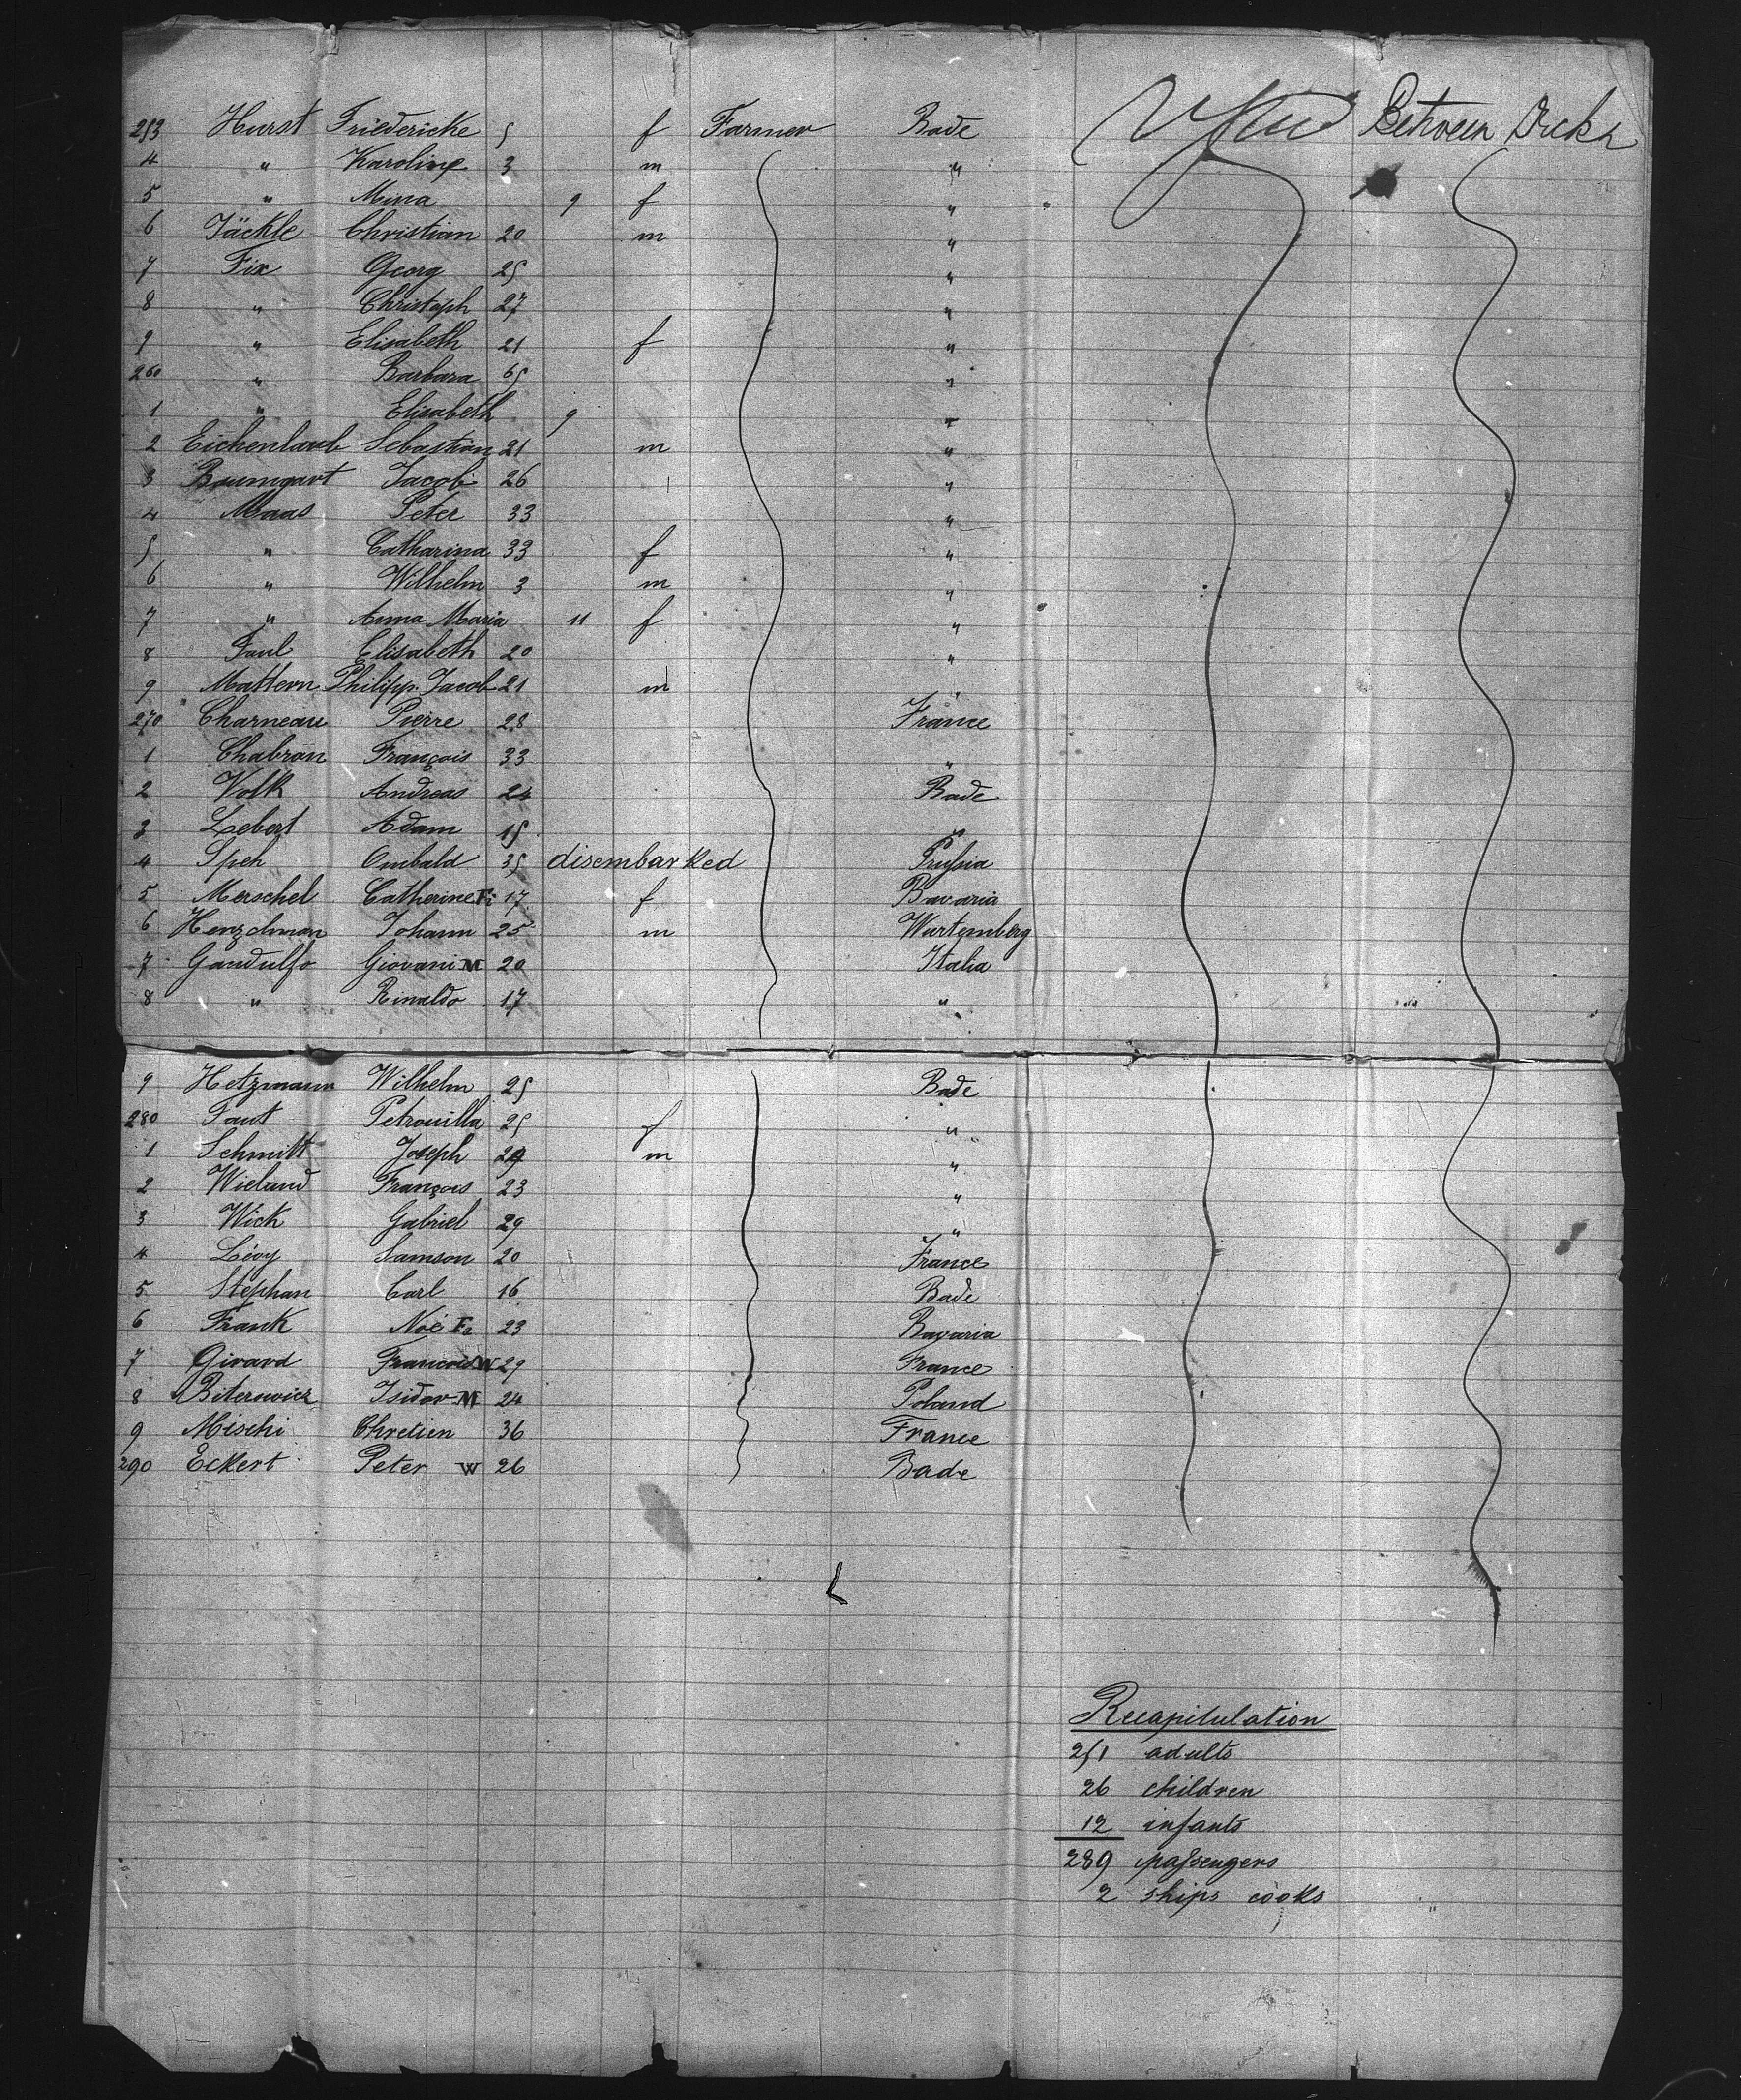 253 Hurst Friedericke 5 f Farmer Bade U States Between Decks
4 " Karoline 3 m "
5 " Mina 9 f "
6 Jäckle Christian 20 m "
7 Fix Georg 25 "
8 " Christoph 27 "
9 " Elisabeth 21 f "
260 " Barbara 65 "
1 " Elisabeth 9 "
2 Eichenlaub Sebastian 21 m "
3 Baumgart Jacob 26 "
4 Maas Peter 33 "
5 " Catharina 33 f "
6 " Wilhelm 3 m "
7 " Anna Maria 11 f "
8 Faul Elisabeth 20 "
9 Mattern Philipp Jacob 21 m "
270 Charneau Pierre 28 France
1 Chabran François 33 "
2 Volk Andreas 24 Bade
3 Lebert Adam 15 "
4 Speh Ombald 35 disembarked Prussia
5 Merschel Catherine 17 f Bavaria
6 Henzelman Johann 25 m Wurtemberg
7 Gandulfo Giovani M 20 Italia
8 " Rinaldo 17 "
9 Hetzmann Wilhelm 25 Bade
280 Faut Petronilla 25 f "
1 Schmitt Joseph 29 m "
2 Wieland François 23 "
3 Wick Gabriel 29 "
4 Lévy Samson 20 France
5 Stephan Carl 16 Bade
6 Frank Noé 23 Bavaria
7 Girard Francois W 29 France
8 Isidor M 24 Poland
9 Mischi Chretien 36 France
290 Eckert Peter W 26 Bade
Recapitulation
251 adults
26 children
12 infants
289 passengers
2 ships cooks